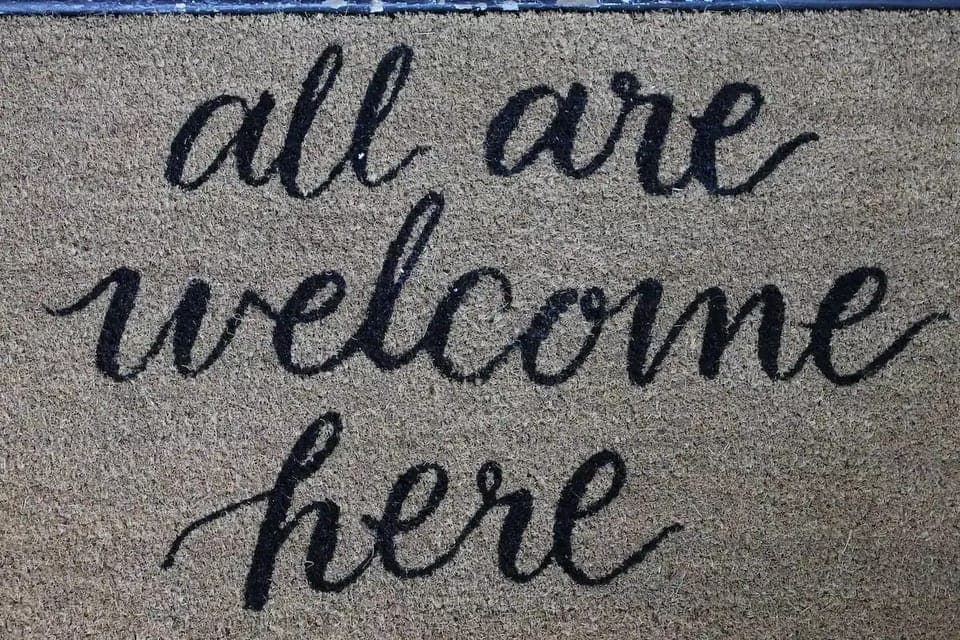 all are
welcome
here